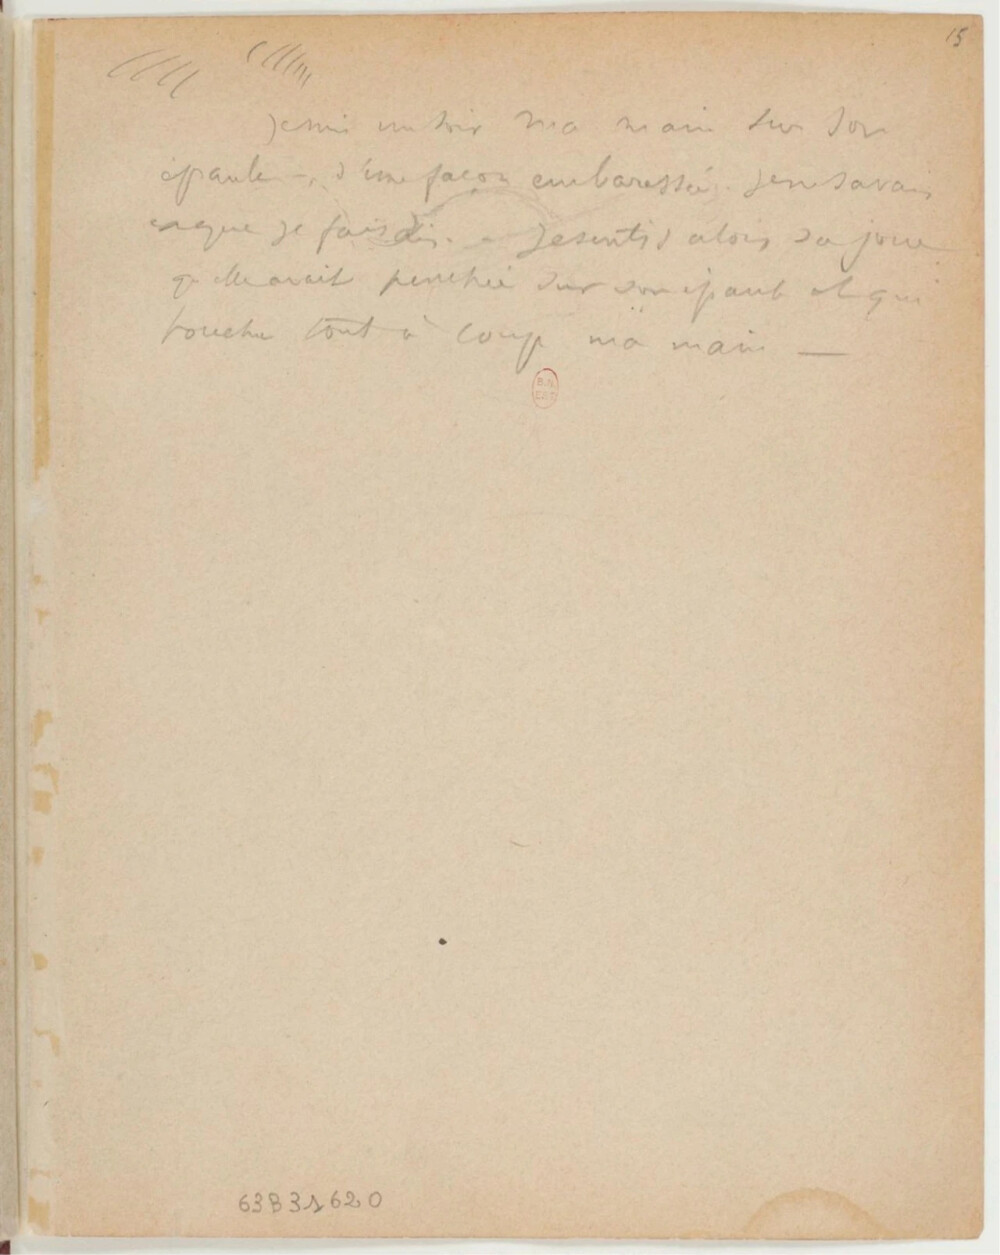 15
Je mis un soir ma main sur son
épaule –, d'une façon embaressée. Je ne savais
ce que je faisais. – Je sentis alors sa joue
qu'elle avait penchée sur son épaule et qui
toucha tout à coup ma main —
B.N.
EST.
63B31620